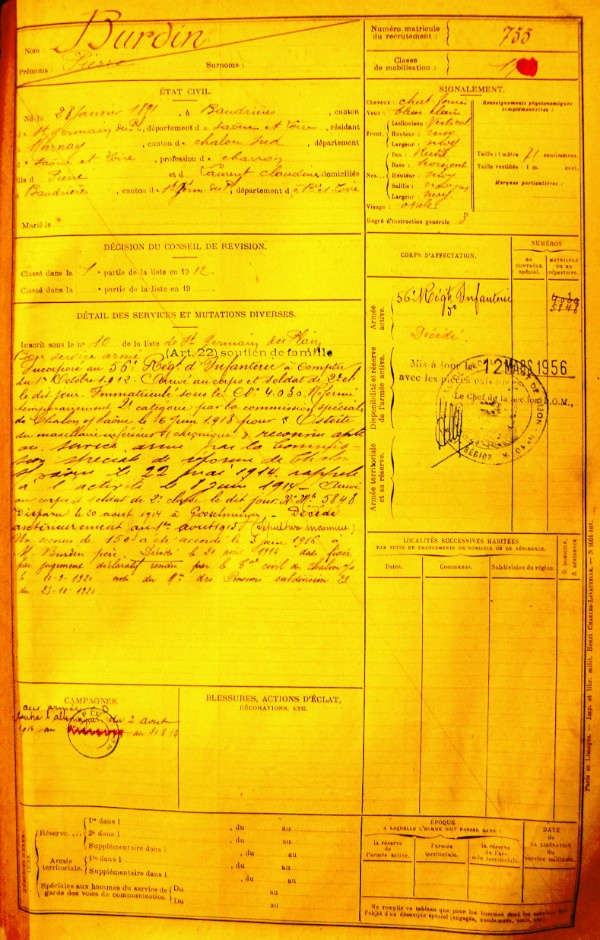 Nom : Burdin
Prénoms : Pierre Surnoms :
Numéro matricule du recrutement : 755
Classe de mobilisation :
ÉTAT CIVIL.
Né le 28 Janvier 1891, à Baudrières, canton
d St Germain du Pl, département d Saône et Loire, résidant
à Varnay, canton d chalon Sud, département
d Saône et Loire, profession d charron
fils d Pierre et d Laurent Claudine, domiciliés
à Baudrières, canton d St Germ. du Pl, département d S. et Loire
Marié le
SIGNALEMENT.
Cheveux : chat.
Yeux : bleu clair
Front. Inclinaison Vertical
Hauteur : moy
Largeur : moy
Nez... Dos : Rectil
Base : horizont
Hauteur : moy
Saillie : moyen
Largeur : moy
Visage : ovale
Renseignements physionomiques complémentaires :
Taille : 1 mètre 71 centimètres.
Taille rectifiée : 1 m. cent.
Marques particulières :
Degré d'instruction générale 3
DÉCISION DU CONSEIL DE REVISION.
Classé dans la 1 partie de la liste en 1912.
Classé dans la partie de la liste en 19
DÉTAIL DES SERVICES ET MUTATIONS DIVERSES.
Inscrit sous le n° 10 de la liste de St Germain du Plain
Bon service armé (Art. 22) soutien de famille
Incorporé au 56e Régt d'Infanterie à compter
du 1er Octobre 1912. Arrivé au corps et soldat de 2e cl
le dit jour. Immatriculé sous le No 4030. Réformé
temporairement 2e catégorie par la commission spéciale
de Chalon s/ Saône le 6 Juin 1913 pour Ostéite
du maxillaire inférieur chronique reconnu apte
au service armé par la commis-
sion spéciale de réforme de Chalon
s/ Saône le 22 mai 1914, rappelé
à l'activité le 8 juin 1914. Arrivé
au corps et soldat de 2e classe le dit jour. No Mle 5848
Disparu le 20 août 1914 à Décédé
antérieurement au 1er avril 1915 (Sépulture inconnue).
Un secours de 150f a été accordé le 3 juin 1916 à
M. Burdin père. Décédé le 20 août 1914 date fixée
par jugement déclaratif rendu par le civil de Chalon s/s
le 10-2-1920 du des Pensions
du 23-11-1920
CORPS D'AFFECTATION.
NUMÉROS
AU CONTRÔLE spécial.
MATRICULE OU AU répertoire.
Armée active.
56e Régt Infanterie
4030
5848
Décédé
Disponibilité et réserve de l'armée active.
Mis à jour le 12 MARS 1956
avec les pièces
Le Chef de la section A.O.M.,
Armée territoriale et sa réserve.
LOCALITÉS SUCCESSIVES HABITÉES
PAR SUITE DE CHANGEMENTS DE DOMICILE OU DE RÉSIDENCE.
Dates. Communes. Subdivision de région. D. DOMICILE. R. RÉSIDENCE.
CAMPAGNES.
aux armées
contre l'Allemagne du 2 août
1914 au au 20 8 14
BLESSURES, ACTIONS D'ÉCLAT,
DÉCORATIONS, ETC.
Réserve.... 1re dans l , du au
2e dans l , du au
Supplémentaire dans l , du au
Armée territoriale. 1re dans l , du au
Supplémentaire dans l , du au
Spéciale aux hommes du service de gardes des voies de communication. Du au
Du au
ÉPOQUE
A LAQUELLE L'HOMME DOIT PASSER DANS :
la réserve de l'armée active.
l'armée territoriale.
la réserve de l'armée territoriale.
DATE de LA LIBÉRATION du service militaire.
Ne remplir ce tableau que pour les hommes dont les services
l'objet d'un décompte spécial (engagés, condamnés, omis, etc.)
Paris et Limoges. — Imp. et libr. milit. Henri CHARLES-LAVAUZELLE.